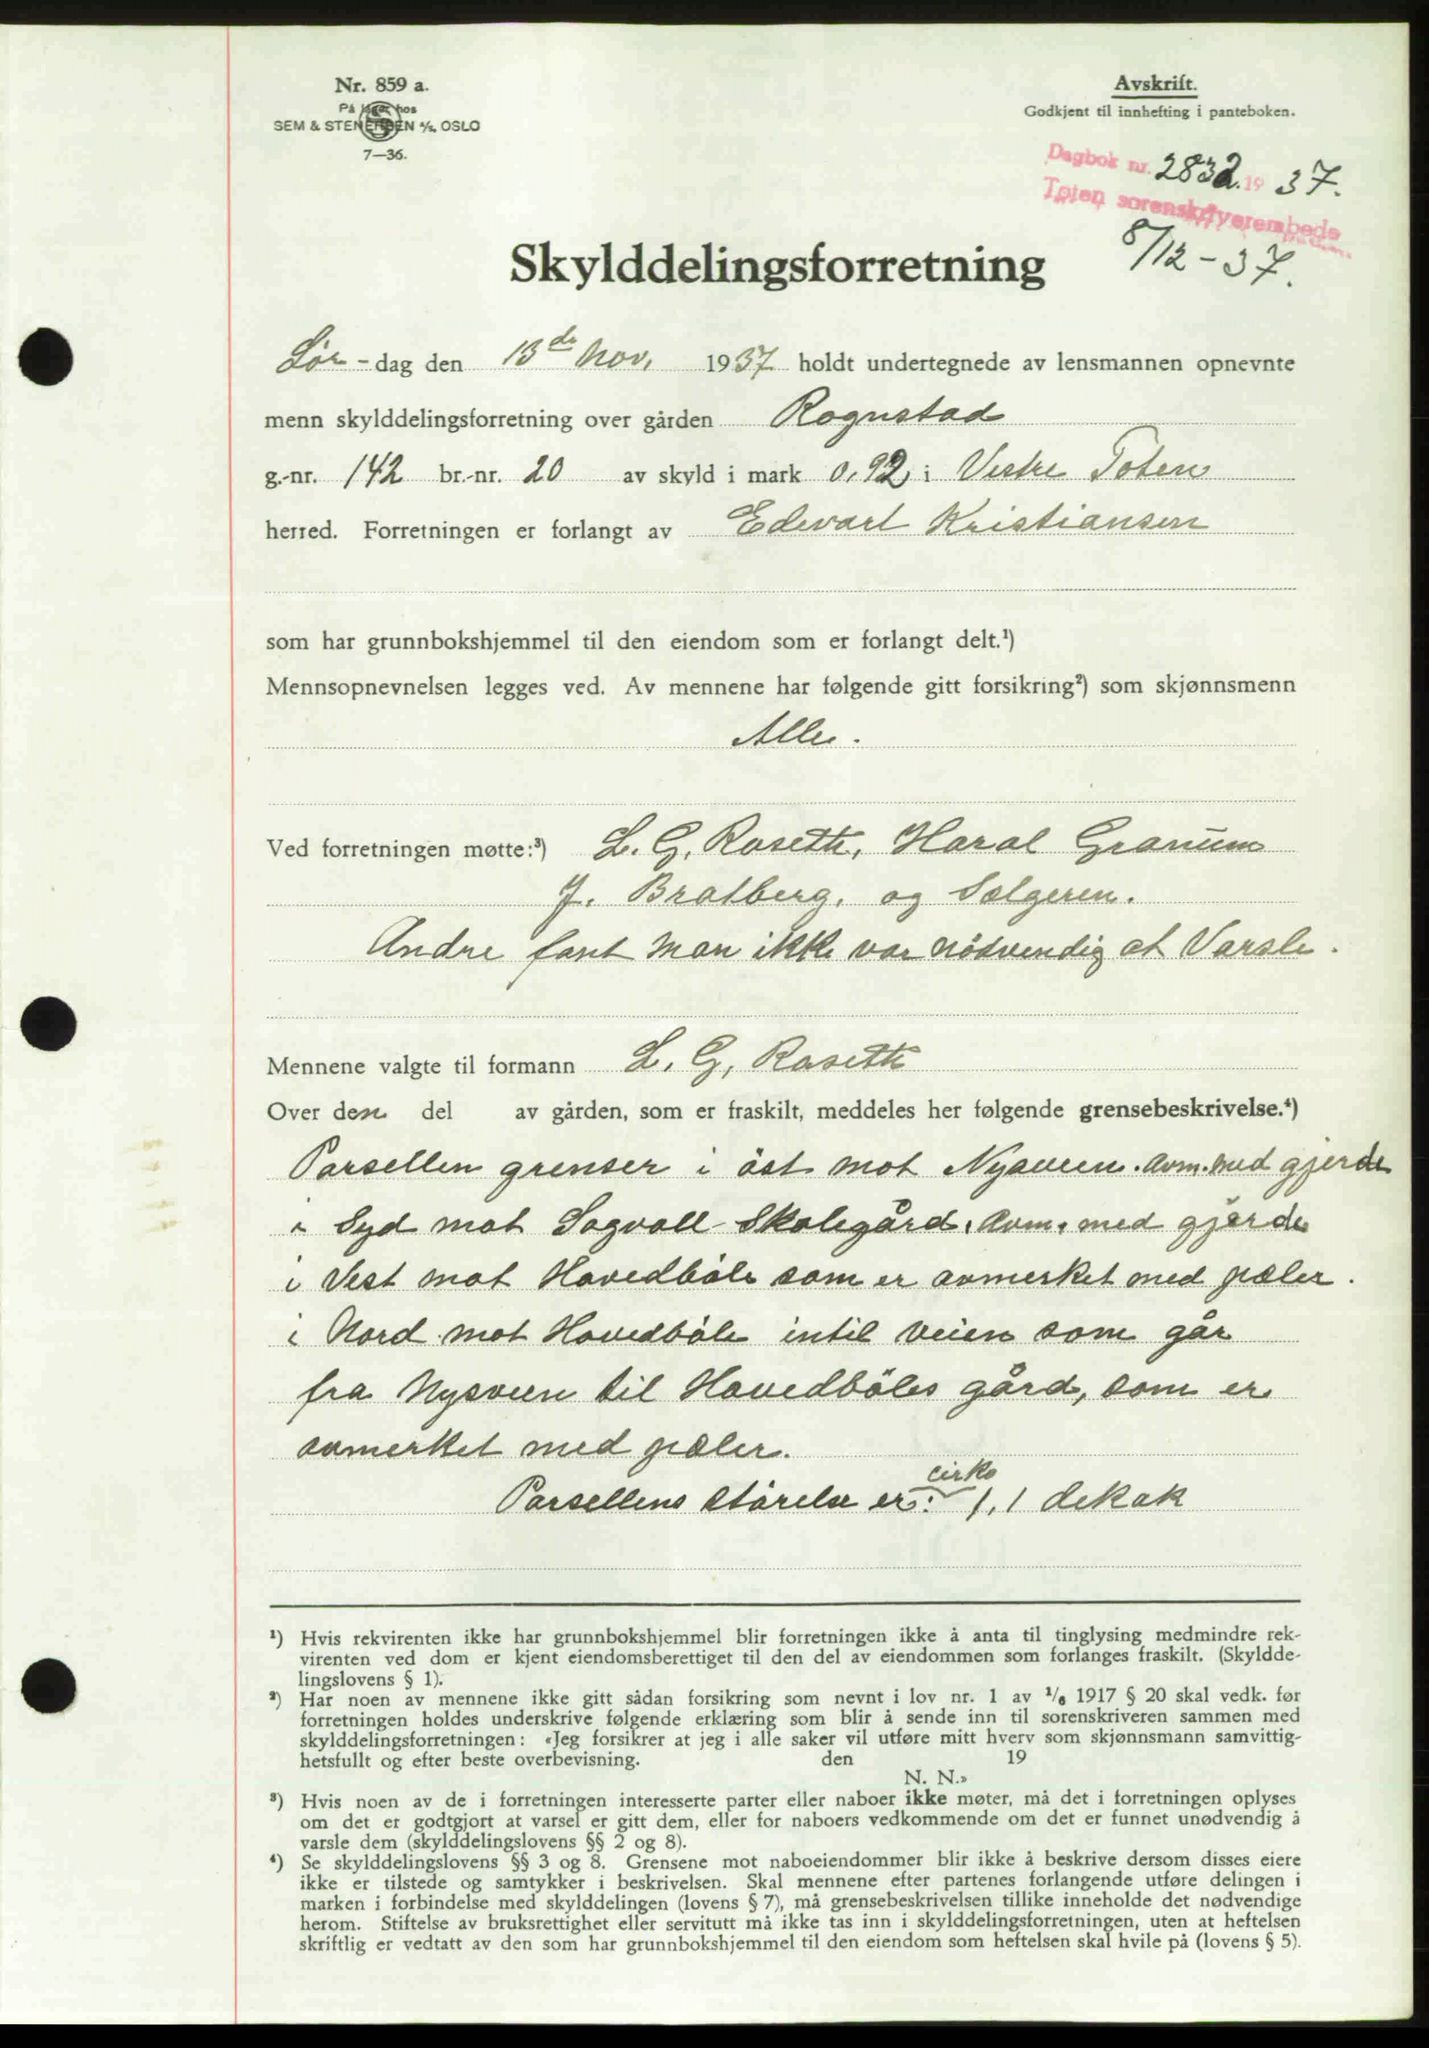 Nr. 859 a.
På lager hos
SEM & STENERSEN A/S, OSLO
7—36.
Avskrift.
Godkjent til innhefting i panteboken.
Dagbok nr. 2832. 19 37.
Toten sorenskriverembede
8/12 - 37.
Skylddelingsforretning
Lør - dag den 13de Nov. 1937 holdt undertegnede av lensmannen opnevnte
menn skylddelingsforretning over gården Rognstad
g.-nr. 142 br.-nr. 20 av skyld i mark 0,92 i Vestre Toten
herred. Forretningen er forlangt av Edevart Kristiansen
som har grunnbokshjemmel til den eiendom som er forlangt delt.¹)
Mennsopnevnelsen legges ved. Av mennene har følgende gitt forsikring²) som skjønnsmenn
Alle.
Ved forretningen møtte:³) L. G. Roseth, Haral Granum
J. Bratberg, og Sælgeren.
Andre fant man ikke var nödvendig at Varsle.
Mennene valgte til formann L. G. Roseth
Over den del av gården, som er fraskilt, meddeles her følgende grensebeskrivelse.⁴)
Parsellen grenser i öst mot Nysveen. avm. med gjerde
i Syd mot Sogvoll Skolegård, Avm. med gjerde
i Vest mot Hovedböle som er avmerket med pæler.
i Nord mot Hovedböle intil veien som går
fra Nysveen til Hovedböles gård, som er
avmerket med pæler.
Parsellens störelse er: cirka 1,1 dekar
¹) Hvis rekvirenten ikke har grunnbokshjemmel blir forretningen ikke å anta til tinglysing medmindre rek-
virenten ved dom er kjent eiendomsberettiget til den del av eiendommen som forlanges fraskilt. (Skyldde-
lingslovens § 1).
²) Har noen av mennene ikke gitt sådan forsikring som nevnt i lov nr. 1 av 1/6 1917 § 20 skal vedk. før
forretningen holdes underskrive følgende erklæring som blir å sende inn til sorenskriveren sammen med
skylddelingsforretningen: «Jeg forsikrer at jeg i alle saker vil utføre mitt hverv som skjønnsmann samvittig-
hetsfullt og efter beste overbevisning. den 19
N. N.»
³) Hvis noen av de i forretningen interesserte parter eller naboer ikke møter, må det i forretningen oplyses
om det er godtgjort at varsel er gitt dem, eller for naboers vedkommende om det er funnet unødvendig å
varsle dem (skylddelingslovens §§ 2 og 8).
⁴) Se skylddelingslovens §§ 3 og 8. Grensene mot naboeiendommer blir ikke å beskrive dersom disses eiere
ikke er tilstede og samtykker i beskrivelsen. Skal mennene efter partenes forlangende utføre delingen i
marken i forbindelse med skylddelingen (lovens § 7), må grensebeskrivelsen tillike inneholde det nødvendige
herom. Stiftelse av bruksrettighet eller servitutt må ikke tas inn i skylddelingsforretningen, uten at heftelsen
skriftlig er vedtatt av den som har grunnbokshjemmel til den eiendom som heftelsen skal hvile på (lovens § 5).